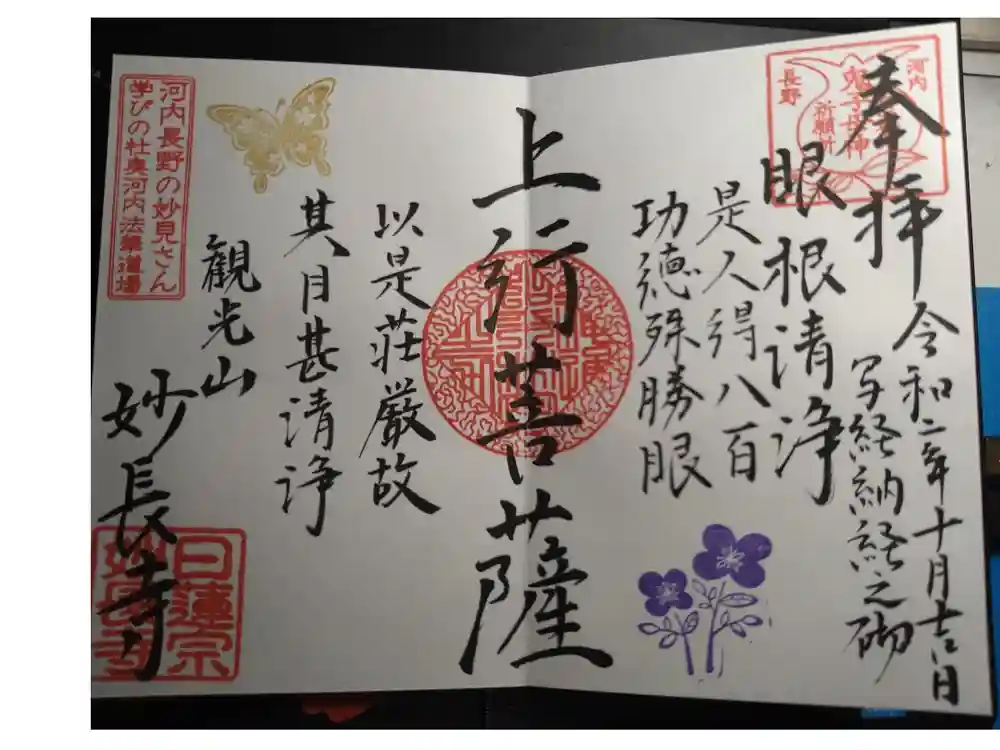 奉拝
令和二年十月吉日
写経納経之砌
河内
長野
鬼子母神
祈願所
眼根清浄
是人得八百
功徳殊勝眼
上行菩薩
以是荘厳故
其目甚清浄
観光山
妙長寺
河内長野の妙見さん
学びの杜奥河内法華道場
日蓮宗
妙長寺